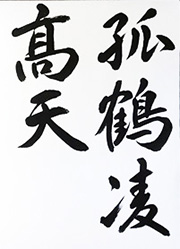 孤鶴凌
髙天